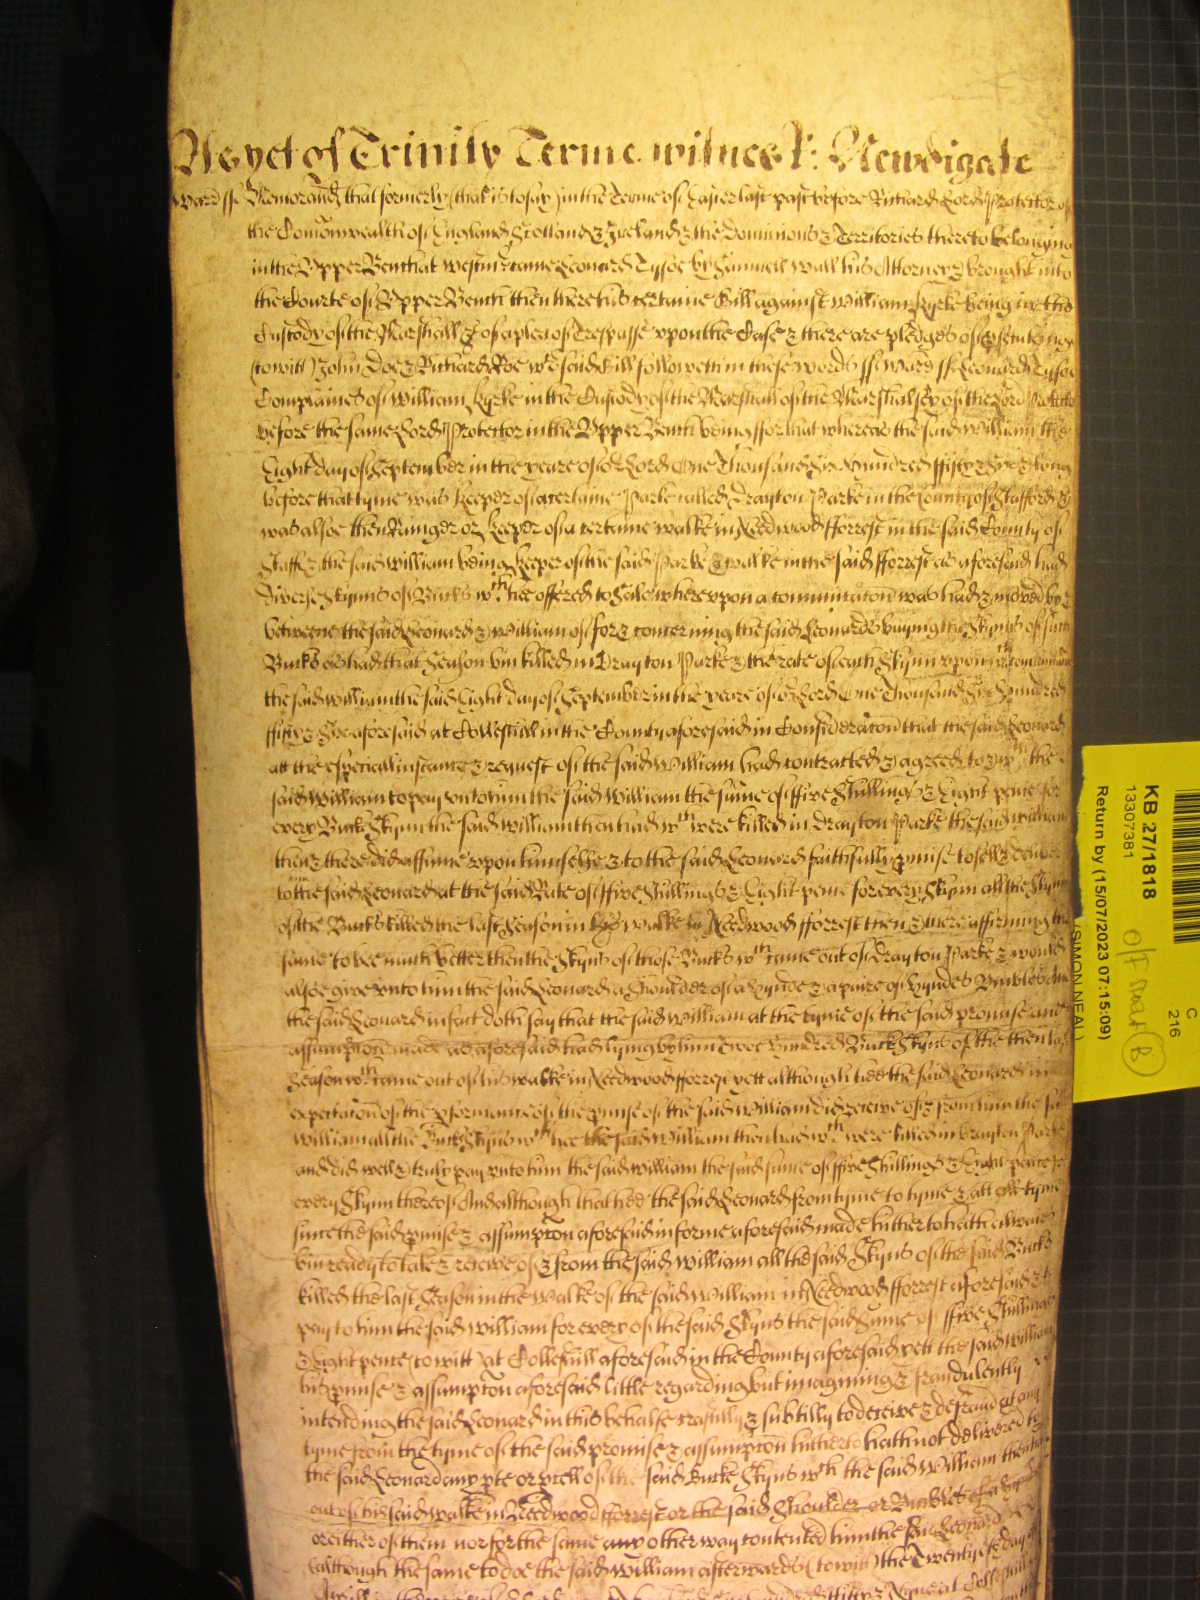 As yet of Trinity Terme. witnes R: Newdigate
Warr ss Memorand that formerly (that is to say) in the Terme of Easter last past before Richard Lord Protector of
the Comonwealth of England Scotland & Ireland & the Dominions & Territories thereto belonging
in the Upper Bench at Westmr came Leonard Tysoe by Samuell Wall his Attorney & brought into
the Courte of Upper Bench then there his certaine Bill against William Kyrke being in the
Custody of the Marshall &c of a plea of Trespasse upon the Case & there are pledges of
(to witt) John Doe & Richard Roe wch said Bill followeth in these words ss Warr ss Leonard Tysoe
Complaines of William Kyrke in the Custody of the Marshall of the Marshalsey of the Lord Protector
before the same Lord Protector in the Upper Bench being ffor that whereas the said William the
Eight day of September in the yeare of or Lord One Thousand Six Hundred ffifty & Six & long
before that tyme was keeper of a certaine Parke called Drayton Parke in the County of Stafford &
was alsoe then Ranger or keeper of a certaine walke in Needwood fforrest in the said County of
Staff & the said William being keeper of the said Parke & walke in the said fforrest as aforesaid had
Diverse Skynns of Bucks wch hee offered to Sale whereupon a comunicacon was had & moved by &
betweene the said Leonard & William of for & concerning the said Leonards buying the Skyns of such
Bucks as had that Season bin killed in Drayton Parke & the rate of each Skynn upon wch comunicacon
the said William the said Eight day of September in the yeare of or Lord One Thousand Six Hundred
ffifty & Six aforesaid at Colleshill in the County aforesaid in Consideracon that the said Leonard
att the especiall instance & request of the said William had contracted & agreed to & wth the
said William to pay unto him the said William the sume of ffive Shillings & Eight pence for
every Buck Skynn the said William then had wch were killed in Drayton Parke the said William
then & there did assume upon himselfe & to the said Leonard faithfully pmise to sell & deliver
to the said Leonard at the said Rate of ffive Shillings & Eight pence for every Skynn all the Skyns
of the Bucks killed the last Season in his walke in Needwood fforrest then & there affirming the
same to bee much better then the Skyns of those Bucks wch came out of Drayton Parke & would
alsoe give unto him the said Leonard a Shoulder of a Hynde & a paire of Hyndes Umbles And
the said Leonard in fact doth say that the said William at the tyme of the said promise and
assumpcon made as aforesaid had lying by him Twoe Hundred Buck Skyns of the then last
Season wch came out of his walke in Needwood fforrest yett although hee the said Leonard in
expectacon of the pformance of the pmise of the said William did receive of & from him the said
William all the Buck Skyns wch hee the said William then had wch were killed in Drayton Parke
and did well & truly pay unto him the said William the said sume of ffive Shillings & Eight pence for
every Skynn thereof And although that hee the said Leonard from tyme to tyme & att all tymes
since the said pmise & assumpcon aforesaid in forme aforesaid made hitherto hath alwaies
bin ready to take & receive of & from the said William all the said Skyns of the said Bucks
killed the last Season in the walke of the said William in Needwood fforrest aforesaid & to
pay to him the said William for every of the said Skyns the said Sume of ffive Shillings
& Eight pence (to witt) at Colleshill aforesaid in the County aforesaid yett the said William
his pmise & assumpcon aforesaid little regarding but imagining & fraudulently
intending the said Leonard in this behalfe craftily & subtilly to deceive & defraud at any
tyme from the tyme of the said promise & assumpcon hitherto hath not delivered to
the said Leonard any pte or pcell of the said Bucke Skyns wch the said William then had
out of his said walke in Needwood fforrest or the said Shoulder or Umbles of a Hynde
or either of them nor for the same any other way contented him the said Leonard
(although the same to doe the said William afterwards (to witt) the Twentyeth day of
KB 27/1818
13307381
Return by (15/07/2023 07:15:09)
(SIMON NEAL)
C
216